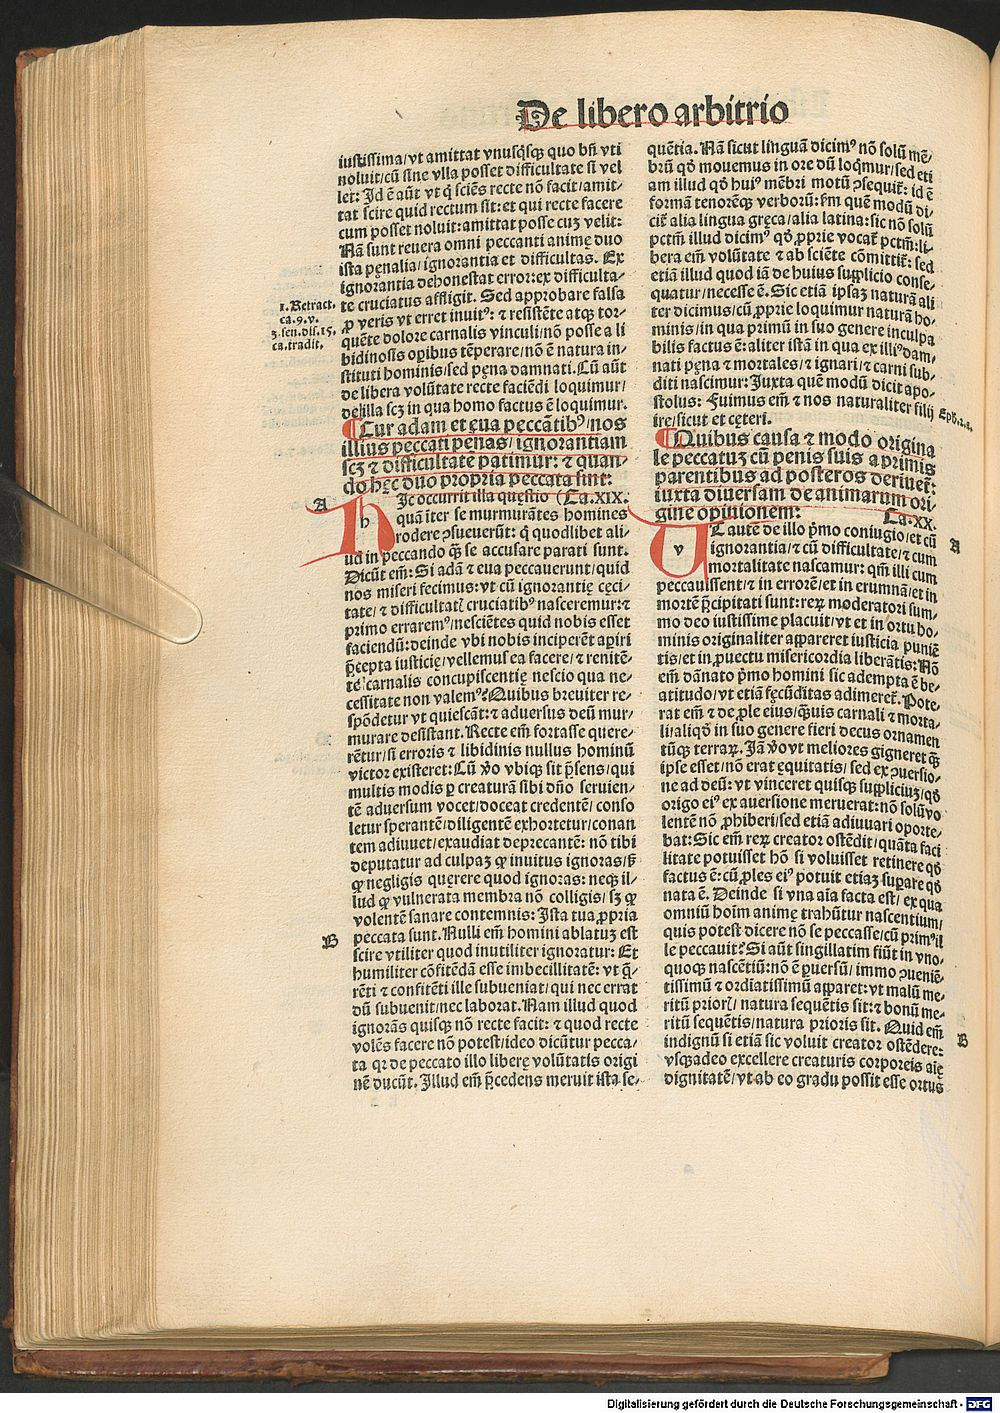 De libero arbitrio
iustissima/vt amittat vnusq̃sq̃ quo bñ vti
noluit/cũ sine vlla posset difficultate si vel
let: Id ẽ aũt vt q̃ sciẽs recte nõ facit/amit-
tat scire quid rectum sit: et qui recte facere
cum posset noluit: amittat posse cuʒ velit:
Nã sunt reuera omni peccanti animę duo
ista pęnalia/ignorantia et difficultas. Ex
ignorantia dehonestat error: ex difficulta-
te cruciatus affligit. Sed approbare falsa
ꝓ veris vt erret inuitꝰ: ⁊ resistẽte atqʒ tor-
quẽte dolore carnalis vinculi/nõ posse a li
bidinosis oꝑibus tẽperare/nõ ẽ natura in-
stituti hominis/sed pęna damnati. Cũ aũt
de libera volũtate recte faciẽdi loquimur/
de illa scʒ in qua homo factus ẽ loquimur.
1.Retract.
ca.9.v.
3.sen.dis.15.
ca.tradit.
¶Cur adam et ęua peccãtibꝰ/nos
illius peccati pęnas/ignorantiam
scʒ ⁊ difficultatẽ patimur: ⁊ quan-
do hęc duo propria peccata sint:
A
h
Ic occurrit illa questio (Ca.XIX.
quã iter se murmurãtes homines
rodere ꝯsueuerũt: q̃ quodlibet ali-
ud in peccando q̃ʒ se accusare parati sunt.
Dicũt em̃: Si adã ⁊ eua peccauerunt/quid
nos miseri fecimus: vt cũ ignorantię cęci-
tate/⁊ difficultatꝭ cruciatibꝰ nasceremur: ⁊
primo erraremꝰ/nesciẽtes quid nobis esset
faciendũ: deinde vbi nobis inciperẽt aꝑiri
p̃cepta iusticię/vellemus ea facere/⁊ renitẽ-
te carnalis concupiscentię nescio qua ne-
cessitate non valemꝰ? Quibus breuiter re-
spõdetur vt quiescãt: ⁊ aduersus deũ mur-
murare desistant. Recte em̃ fortasse quere-
rẽtur/si erroris ⁊ libidinis nullus hominũ
victor existeret: Cũ ꝟo vbiqʒ sit p̃sens/qui
multis modis ꝑ creaturã sibi dño seruien-
tẽ aduersum vocet/doceat credentẽ/conso
letur sperantẽ/diligentẽ exhortetur/conan
tem adiuuet/exaudiat deprecantẽ: nõ tibi
deputatur ad culpaʒ ꝙ inuitus ignoras/s̃
ꝙ negligis quęrere quod ignoras: neqʒ il-
lud ꝙ vulnerata membra nõ colligis/sʒ ꝙ
volentẽ sanare contemnis: Ista tua ꝓpria
B
peccata sunt. Nulli em̃ homini ablatuʒ est
scire vtiliter quod inutiliter ignoratur: Et
humiliter cõfitẽdã esse imbecillitatẽ: vt q̃-
rẽti ⁊ confitẽti ille subueniat/qui nec errat
dũ subuenit/nec laborat. Nam illud quod
ignorãs quisqʒ nõ recte facit: ⁊ quod recte
volẽs facere nõ potest/ideo dicũtur pecca-
ta qꝛ de peccato illo liberę volũtatꝭ origi
nẽ ducũt. Illud em̃ p̃cedens meruit ista se-
quẽtia. Nã sicut linguã dicimꝰ nõ solũ mẽ-
brũ qd̃ mouemus in ore dũ loq̃mur/sed eti
am illud qd̃ huiꝰ mẽbri motũ ꝯsequit̃: id ẽ
formã tenorẽqʒ verborũ: s̃m quẽ modũ di-
cit̃ alia lingua gręca/alia latina: sic nõ solũ
pctm̃ illud dicimꝰ qd̃ ꝓprie vocat̃ pctm̃: li-
bera em̃ volũtate ⁊ ab sciẽte cõmittit̃: sed
etiã illud quod iã de huius supplicio conse-
quatur/necesse ẽ. Sic etiã ipsaʒ naturã ali
ter dicimus/cũ ꝓprie loquimur naturã ho-
minis/in qua primũ in suo genere inculpa
bilis factus ẽ: aliter istã in qua ex illiꝰ dam-
nati pęna ⁊ mortales/⁊ ignari/⁊ carni sub-
diti nascimur: Iuxta quẽ modũ dicit apo-
stolus: Fuimus em̃ ⁊ nos naturaliter filij
ire/sicut et cęteri.
Eph.2.a.
¶Quibus causa ⁊ modo origina
le peccatuʒ cũ penis suis a primis
parentibus ad posteros deriuet̃:
iuxta diuersam de animarum ori-
gine opinionem: Ca.XX.
A
v
T autẽ de illo p̃mo coniugio/et cũ
ignorantia/⁊ cũ difficultate/⁊ cum
mortalitate nascamur: qm̃ illi cum
peccauissent/⁊ in errorẽ/et in erumnã/et in
mortẽ p̃cipitati sunt: reꝝ moderatori sum-
mo deo iustissime placuit/vt et in ortu ho-
minis originaliter appareret iusticia puniẽ
tis/et in ꝓuectu misericordia liberãtis: Nõ
em̃ dãnato p̃mo homini sic adempta ẽ be-
atitudo/vt etiã fęcũditas adimeret̃. Pote-
rat em̃ ⁊ de ꝓle eius/q̃uis carnali ⁊ morta-
li/aliqd̃ in suo genere fieri decus ornamen
tũqʒ terraꝝ. Iã ꝟo vt meliores gigneret q̃ʒ
ipse esset/nõ erat ęquitatis/sed ex ꝯuersio-
ne ad deũ: vt vinceret quisqʒ suppliciuʒ/qd̃
origo eiꝰ ex auersione meruerat: nõ solũ vo
lentẽ nõ ꝓhiberi/sed etiã adiuuari oporte-
bat: Sic em̃ reꝝ creator ostẽdit/quãta faci
litate potuisset hõ si voluisset retinere qd̃
factus ẽ: cũ ꝓles eiꝰ potuit etiaʒ suꝑare qd̃
nata ẽ. Deinde si vna aĩa facta est/ex qua
omniũ hoĩm animę trahũtur nascentium/
quis potest dicere nõ se peccasse/cũ primꝰ il
le peccauit? Si aũt singillatim fiũt in vno-
quoqʒ nascẽtiũ: nõ ẽ ꝑuersũ/immo ꝯueniẽ-
tissimũ ⁊ ordiatissimũ apparet: vt malũ me-
ritũ priorꝭ/natura sequẽtis sit: ⁊ bonũ me-
ritũ sequẽtis/natura prioris sit. Quid em̃
B
indignũ si etiã sic voluit creator ostẽdere:
vsqʒadeo excellere creaturis corporeis aię
dignitatẽ/vt ab eo gradu possit esse ortus
Digitalisierung gefördert durch die Deutsche Forschungsgemeinschaft - DFG